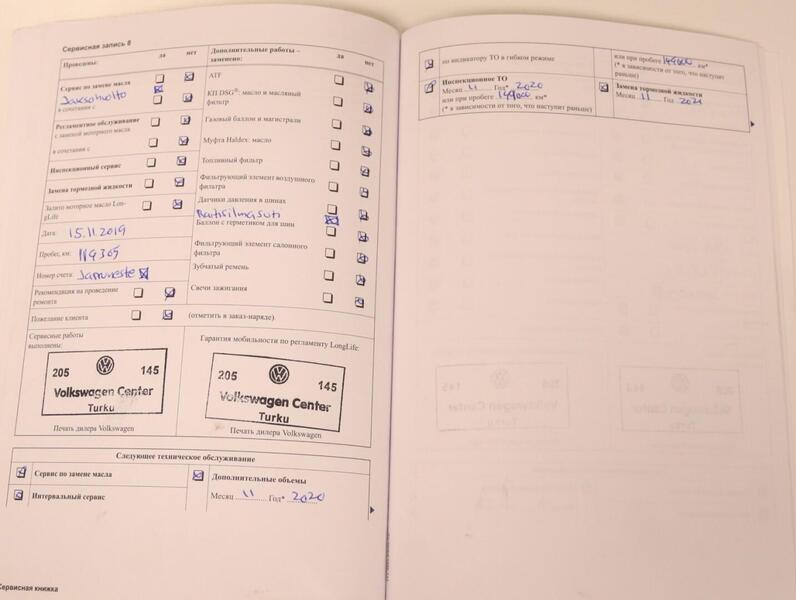 Сервисная запись 8
Проведены:
да
нет
Сервис по замене масла
Jarrsohuolto
в сочетании с
Регламентное обслуживание
с заменой моторного масла
в сочетании с
Инспекционный сервис
Замена тормозной жидкости
Залито моторное масло Lon-
gLife
Дата: 15.11.2019
Пробег, км: 119365
Номер счета: Jarruneste
Рекомендация на проведение
ремонта
Пожелание клиента
(отметить в заказ-наряде).
Дополнительные работы –
заменено:
да
нет
ATF
КП DSG®: масло и масляный
фильтр
Газовый баллон и магистрали
Муфта Haldex: масло
Топливный фильтр
Фильтрующий элемент воздушного
фильтра
Датчики давления в шинах
Raitisilmasuti
Баллон с герметиком для шин
Фильтрующий элемент салонного
фильтра
Зубчатый ремень
Свечи зажигания
Сервисные работы
выполнены:
205 145
Volkswagen Center
Turku
Печать дилера Volkswagen
Гарантия мобильности по регламенту LongLife:
205 145
Volkswagen Center
Turku
Печать дилера Volkswagen
Следующее техническое обслуживание
Сервис по замене масла
Интервальный сервис
Дополнительные объемы
Месяц 11 Год* 2020
Сервисная книжка
по индикатору ТО в гибком режиме
или при пробеге 149000 км*
(* в зависимости от того, что наступит
раньше)
Инспекционное ТО
Месяц 11 Год* 2020
или при пробеге 149000 км*
(* в зависимости от того, что наступит раньше)
Замена тормозной жидкости
Месяц 11 Год 2021